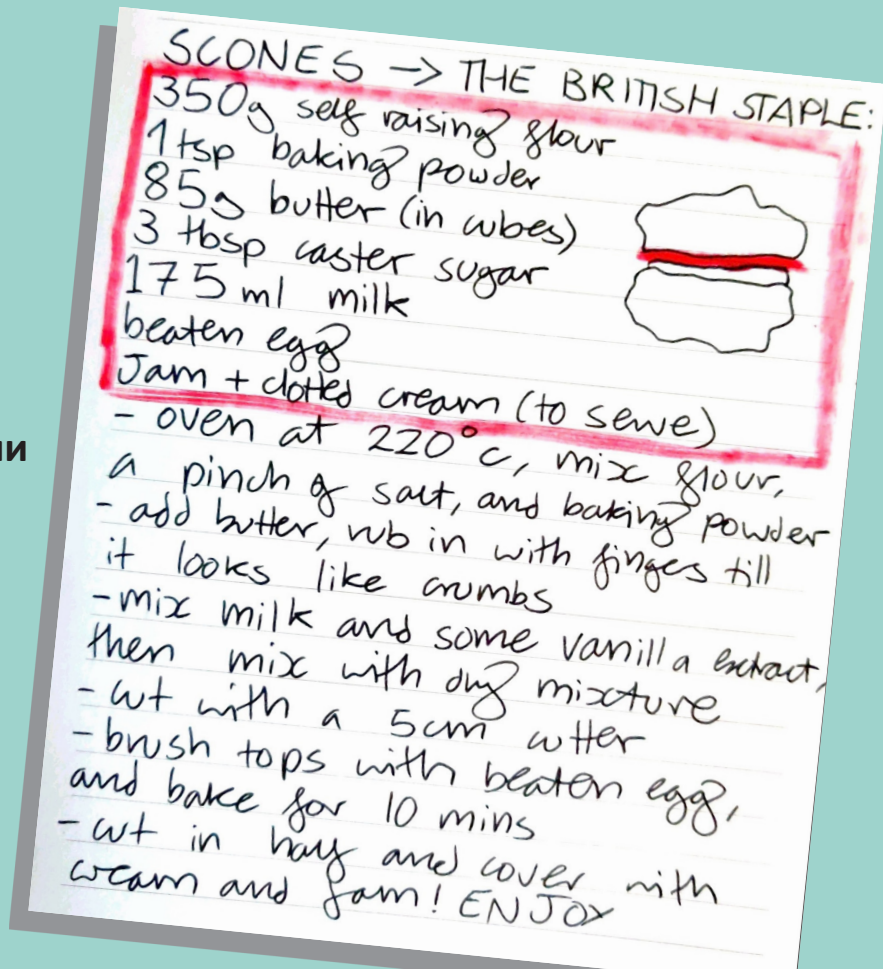 SCONES → THE BRITISH STAPLE:
350g self raising flour
1 tsp baking powder
85g butter (in cubes)
3 tbsp caster sugar
175 ml milk
beaten egg
Jam + clotted cream (to serve)
- oven at 220°c, mix flour,
a pinch of salt, and baking powder
- add butter, rub in with finges till
it looks like crumbs
- mix milk and some vanilla extract,
then mix with dry mixture
- cut with a 5cm cutter
- brush tops with beaten egg,
and bake for 10 mins
- cut in half and cover with
cream and jam! ENJOY
ии